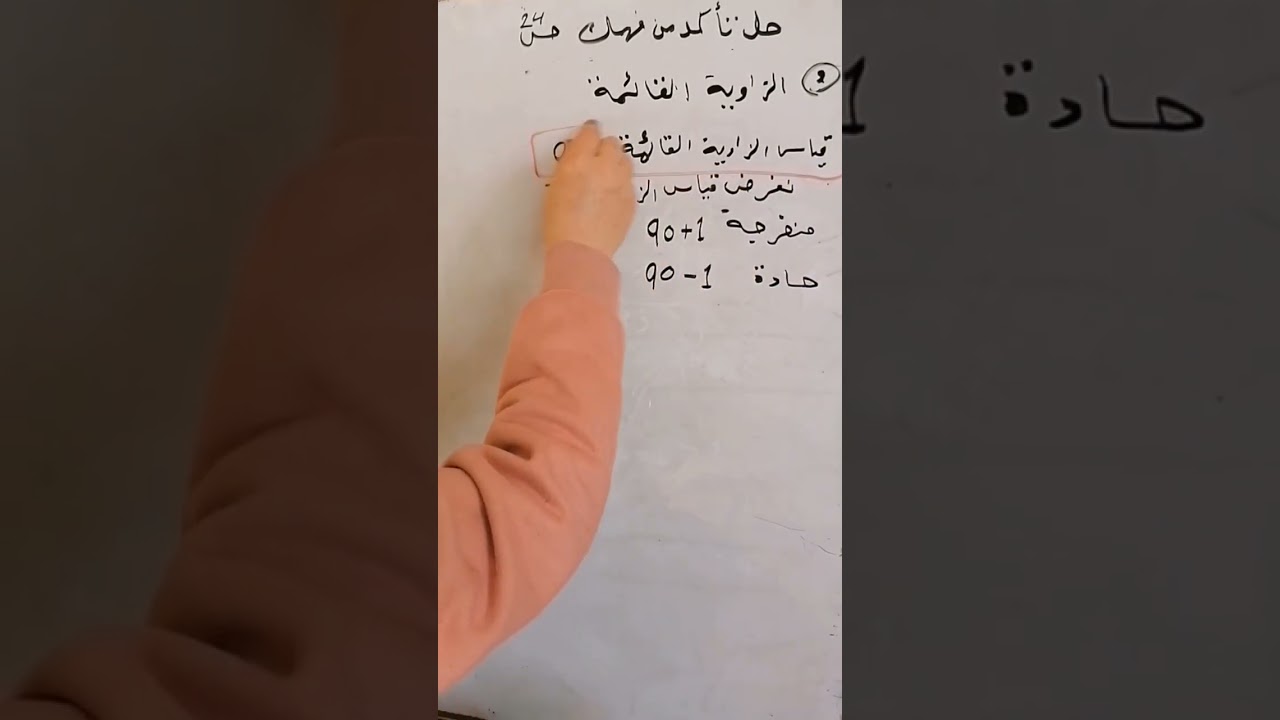 حل تأكد من فهمك ص 24
② الزاوية القائمة
قياس الزاوية القائمة
نفرض قياس
منفرجة 90+1
حادة 90-1
حادة 1